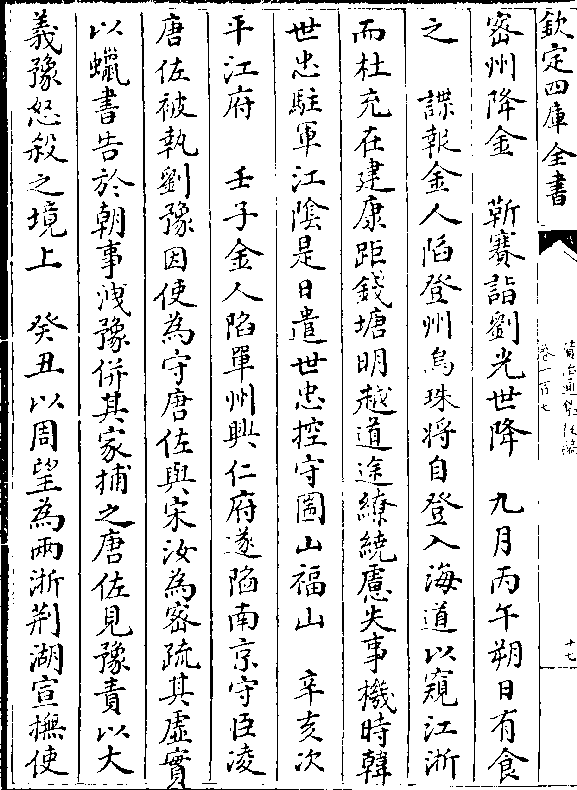 欽定四庫全書
資治通鑑後編
卷一百七
十七
密州降金　靳賽詣劉光世降　九月丙午朔日有食
之　諜報金人陷登州烏珠將自登入海道以窺江浙
而杜充在建康距錢塘明越道途繚繞慮失事機時韓
世忠駐軍江陰是日遣世忠控守圌山福山　辛亥次
平江府　壬子金人陷單州興仁府遂陷南京守臣凌
唐佐被執劉豫因使為守唐佐與宋汝為密疏其虛實
以蠟書告於朝事洩豫併其家捕之唐佐見豫責以大
義豫怒殺之境上　癸丑以周望為兩浙荆湖宣撫使